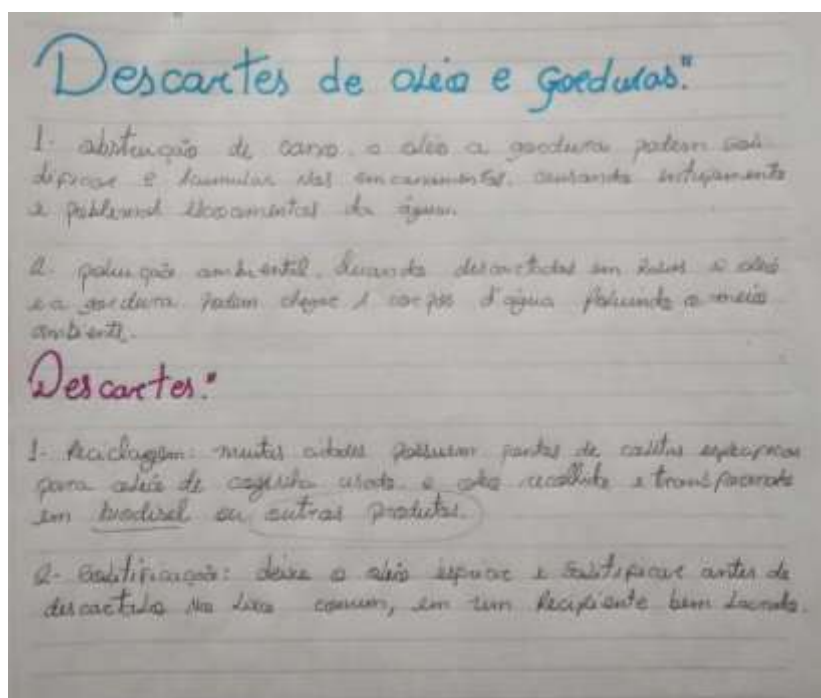 Descartes de oléo e gorduras:"
1. abstenção de cano. o oléo a gordura podem soli
dificar e acumular nas encanamentos. causando entupimento
e problemas escoamentos da água.
2. poluição ambiental. quando descartados em o oléo
e a gordura podem chegar corpos d'água poluindo o meio
ambiente.
Descartes:"
1- Reciclagem: muitas cidades possuem pontos de coletas especificos
para oléo de cozinha usado. e recolhido e transformado
em biodisel ou outros produtos.
2- Solitificação: deixe o oléo esfriar e antes de
descartalo no lixo comum, em um Recipiente bem lacrado.